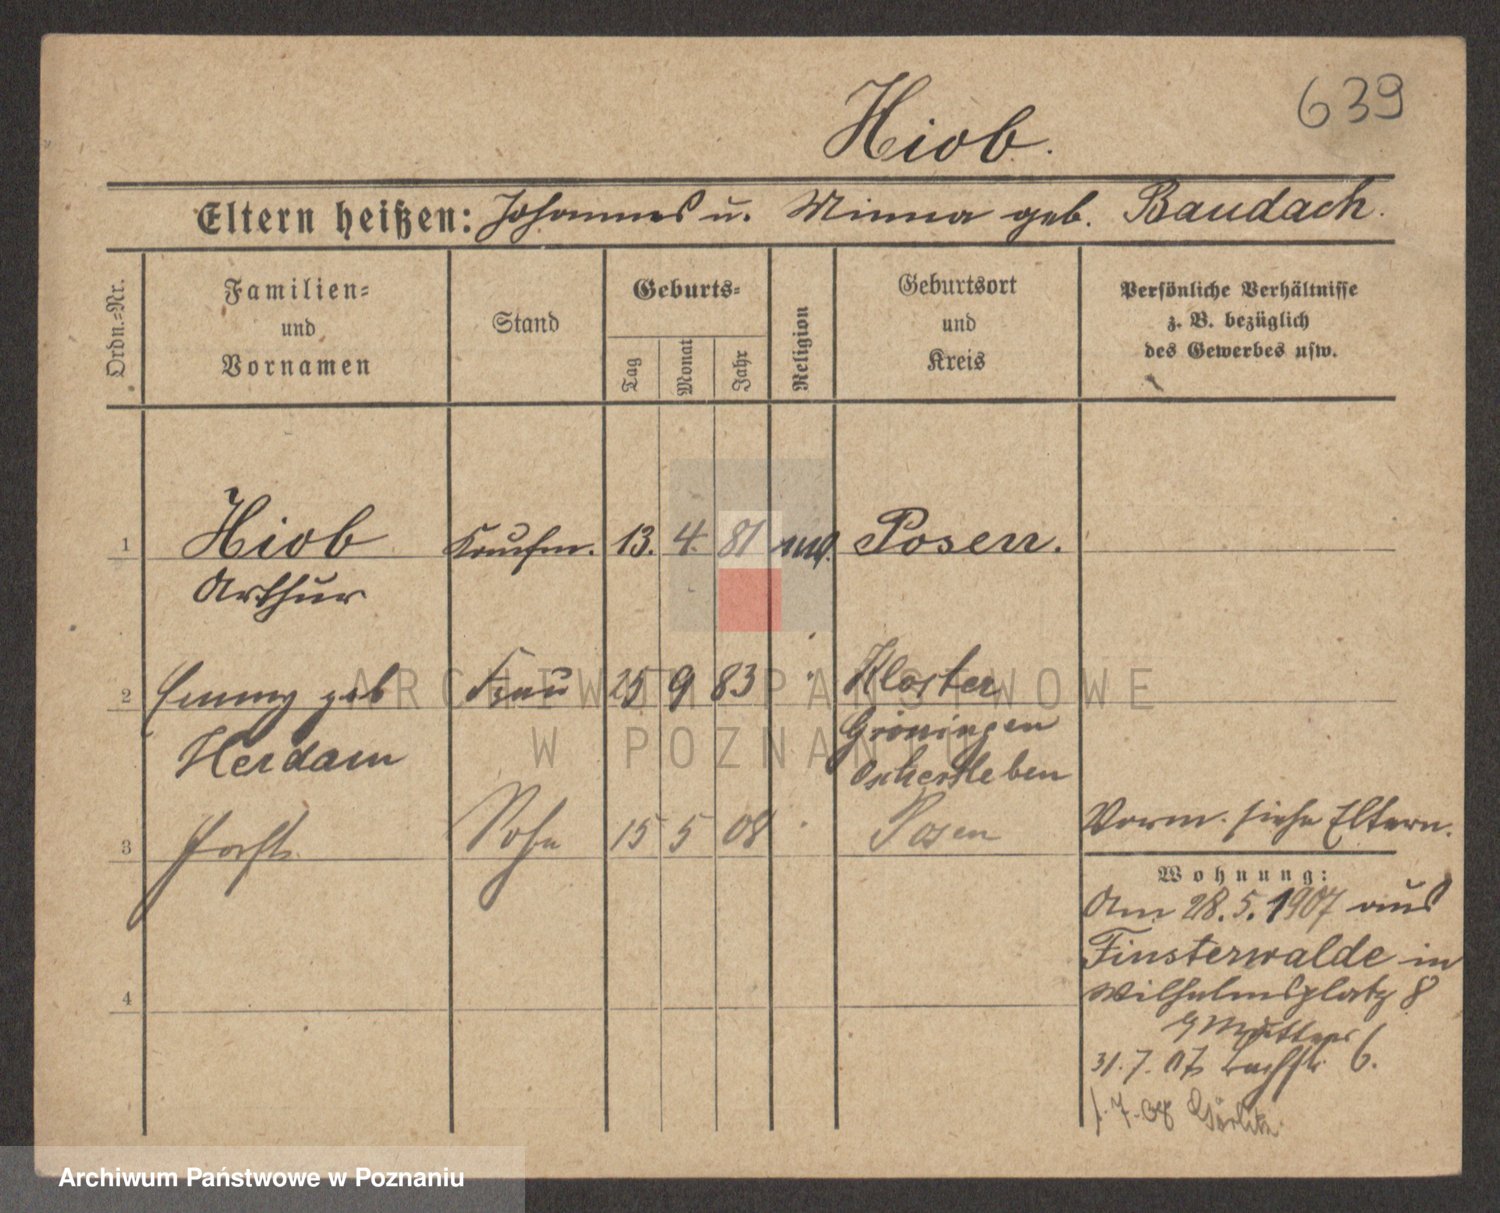 639
Hiob.
Eltern heißen: Johannes u. Minna geb. Baudach.
Ordn.-Nr.
Familien-
und
Vornamen
Stand
Geburts-
Tag
Monat
Jahr
Religion
Geburtsort
und
Kreis
Persönliche Verhältnisse
z. B. bezüglich
des Gewerbes usw.
1 Hiob Kaufm. 13. 4. 81 Posen.
Arthur
2 Emmy geb Frau 25 9 83 " Kloster
Herdam Gröningen
Oschersleben
3 Sohn 15 5 08 " Posen
Vorm. siehe Eltern.
Wohnung:
Am 28.5.1907 aus
Finsterwalde in
Wilhelmsplatz 8
Mutter
31.7.07 6.
1.7.08 Görlitz
4
ARCHIWUM PAŃSTWOWE
W POZNANIU
Archiwum Państwowe w Poznaniu